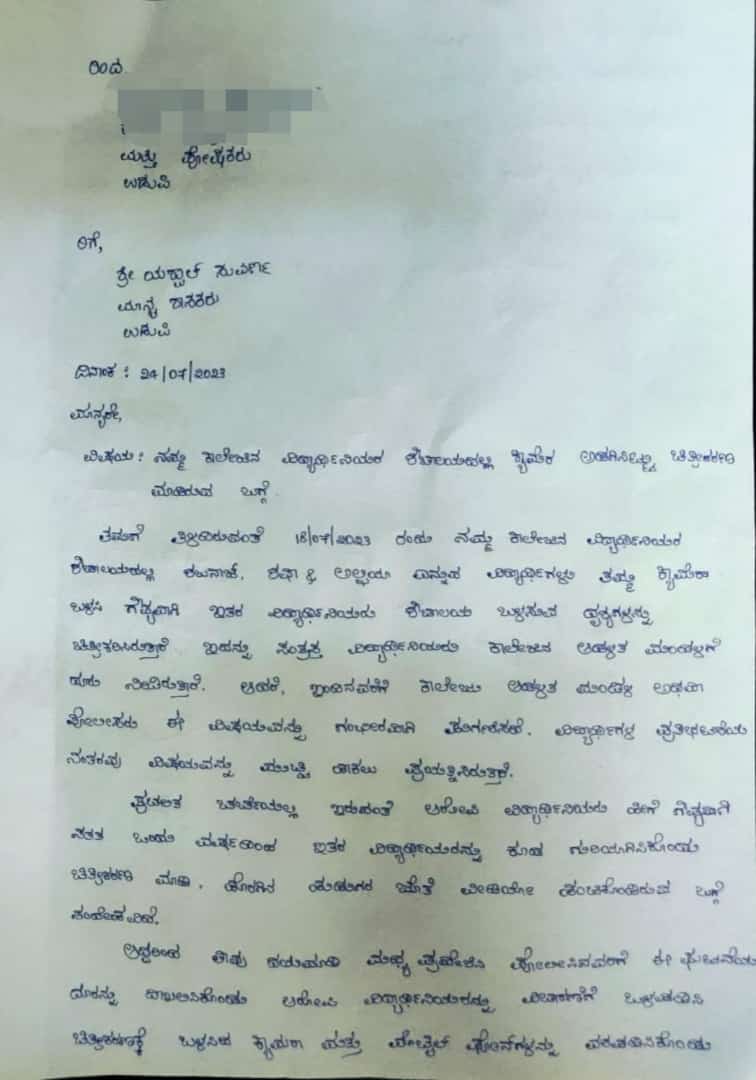 ರಿಂದ
ಮತ್ತು ಪೋಷಕರು
ಉಡುಪಿ
ರಿಗೆ,
ಶ್ರೀ ಯಶ್ಪಾಲ್ ಸುವರ್ಣ
ಮಾನ್ಯ ಶಾಸಕರು
ಉಡುಪಿ
ದಿನಾಂಕ : 24/07/2023
ಮಾನ್ಯರೇ,
ವಿಷಯ : ನಮ್ಮ ಕಾಲೇಜಿನ ವಿದ್ಯಾರ್ಥಿನಿಯರ ಶೌಚಾಲಯದಲ್ಲಿ ಕ್ಯಾಮೆರ ಅಡಗಿಸಿಟ್ಟು ಚಿತ್ರೀಕರಣ
ಮಾಡಿರುವ ಬಗ್ಗೆ.
ತಮಗೆ ತಿಳಿದಿರುವಂತೆ 18/07/2023 ರಂದು ನಮ್ಮ ಕಾಲೇಜಿನ ವಿದ್ಯಾರ್ಥಿನಿಯರ
ಶೌಚಾಲಯದಲ್ಲಿ ಶಬನಾಜ್, ಶಫಾ & ಅಲ್ಫಿಯ ಎನ್ನುವ ವಿದ್ಯಾರ್ಥಿಗಳು ತಮ್ಮ ಕ್ಯಾಮೆರಾ
ಬಳಸಿ ಗೌಪ್ಯವಾಗಿ ಇತರ ವಿದ್ಯಾರ್ಥಿನಿಯರು ಶೌಚಾಲಯ ಬಳಸುವ ದೃಶ್ಯಗಳನ್ನು
ಚಿತ್ರೀಕರಿಸಿರುತ್ತಾರೆ ಇದನ್ನು ಸಂತ್ರಸ್ತ ವಿದ್ಯಾರ್ಥಿನಿಯರು ಕಾಲೇಜಿನ ಆಡಳಿತ ಮಂಡಳಿಗೆ
ದೂರು ನೀಡಿರುತ್ತಾರೆ. ಆದರೆ, ಇಂದಿನವರೆಗೆ ಕಾಲೇಜು ಆಡಳಿತ ಮಂಡಳಿ ಅಥವಾ
ಪೋಲೀಸರು ಈ ವಿಷಯವನ್ನು ಗಂಭೀರವಾಗಿ ಪರಿಗಣಿಸದೆ. ವಿದ್ಯಾರ್ಥಿಗಳ ಪ್ರತಿಭಟನೆಯ
ನಂತರವು ವಿಷಯವನ್ನು ಮುಚ್ಚಿ ಹಾಕಲು ಪ್ರಯತ್ನಿಸಿರುತ್ತಾರೆ.
ಪ್ರಚಲಿತ ಚರ್ಚೆಯಲ್ಲಿ ಇರುವಂತೆ ಆರೋಪಿ ವಿದ್ಯಾರ್ಥಿನಿಯರು ಹೀಗೆ ಗೌಪ್ಯವಾಗಿ
ಸತತ ಒಂದು ವರ್ಷದಿಂದ ಇತರ ವಿದ್ಯಾರ್ಥಿಯರನ್ನು ಕೂಡ ಗುರಿಯಾಗಿಸಿಕೊಂಡು
ಚಿತ್ರೀಕರಣ ಮಾಡಿ, ಹೊರಗಿನ ಹುಡುಗರ ಜೊತೆ ವೀಡಿಯೋ ಹಂಚಿಕೊಂಡಿರುವ ಬಗ್ಗೆ
ಸಂದೇಹವಿದೆ.
ಆದ್ದರಿಂದ ತಾವು ದಯಮಾಡಿ ಮಧ್ಯ ಪ್ರವೇಶಿಸಿ ಪೋಲೀಸಿನವರಿಗೆ ಈ ಘಟನೆಯ
ದೂರನ್ನು ದಾಖಲಿಸಿಕೊಂಡು ಆರೋಪಿ ವಿದ್ಯಾರ್ಥಿನಿಯರನ್ನು ವಿಚಾರಣೆಗೆ ಒಳಪಡಿಸಿ
ಚಿತ್ರೀಕರಣಕ್ಕೆ ಬಳಸಿದ ಕ್ಯಾಮರಾ ಮತ್ತು ಮೊಬೈಲ್ ಫೋನ್‌ಗಳನ್ನು ವಶಪಡಿಸಿಕೊಂಡು